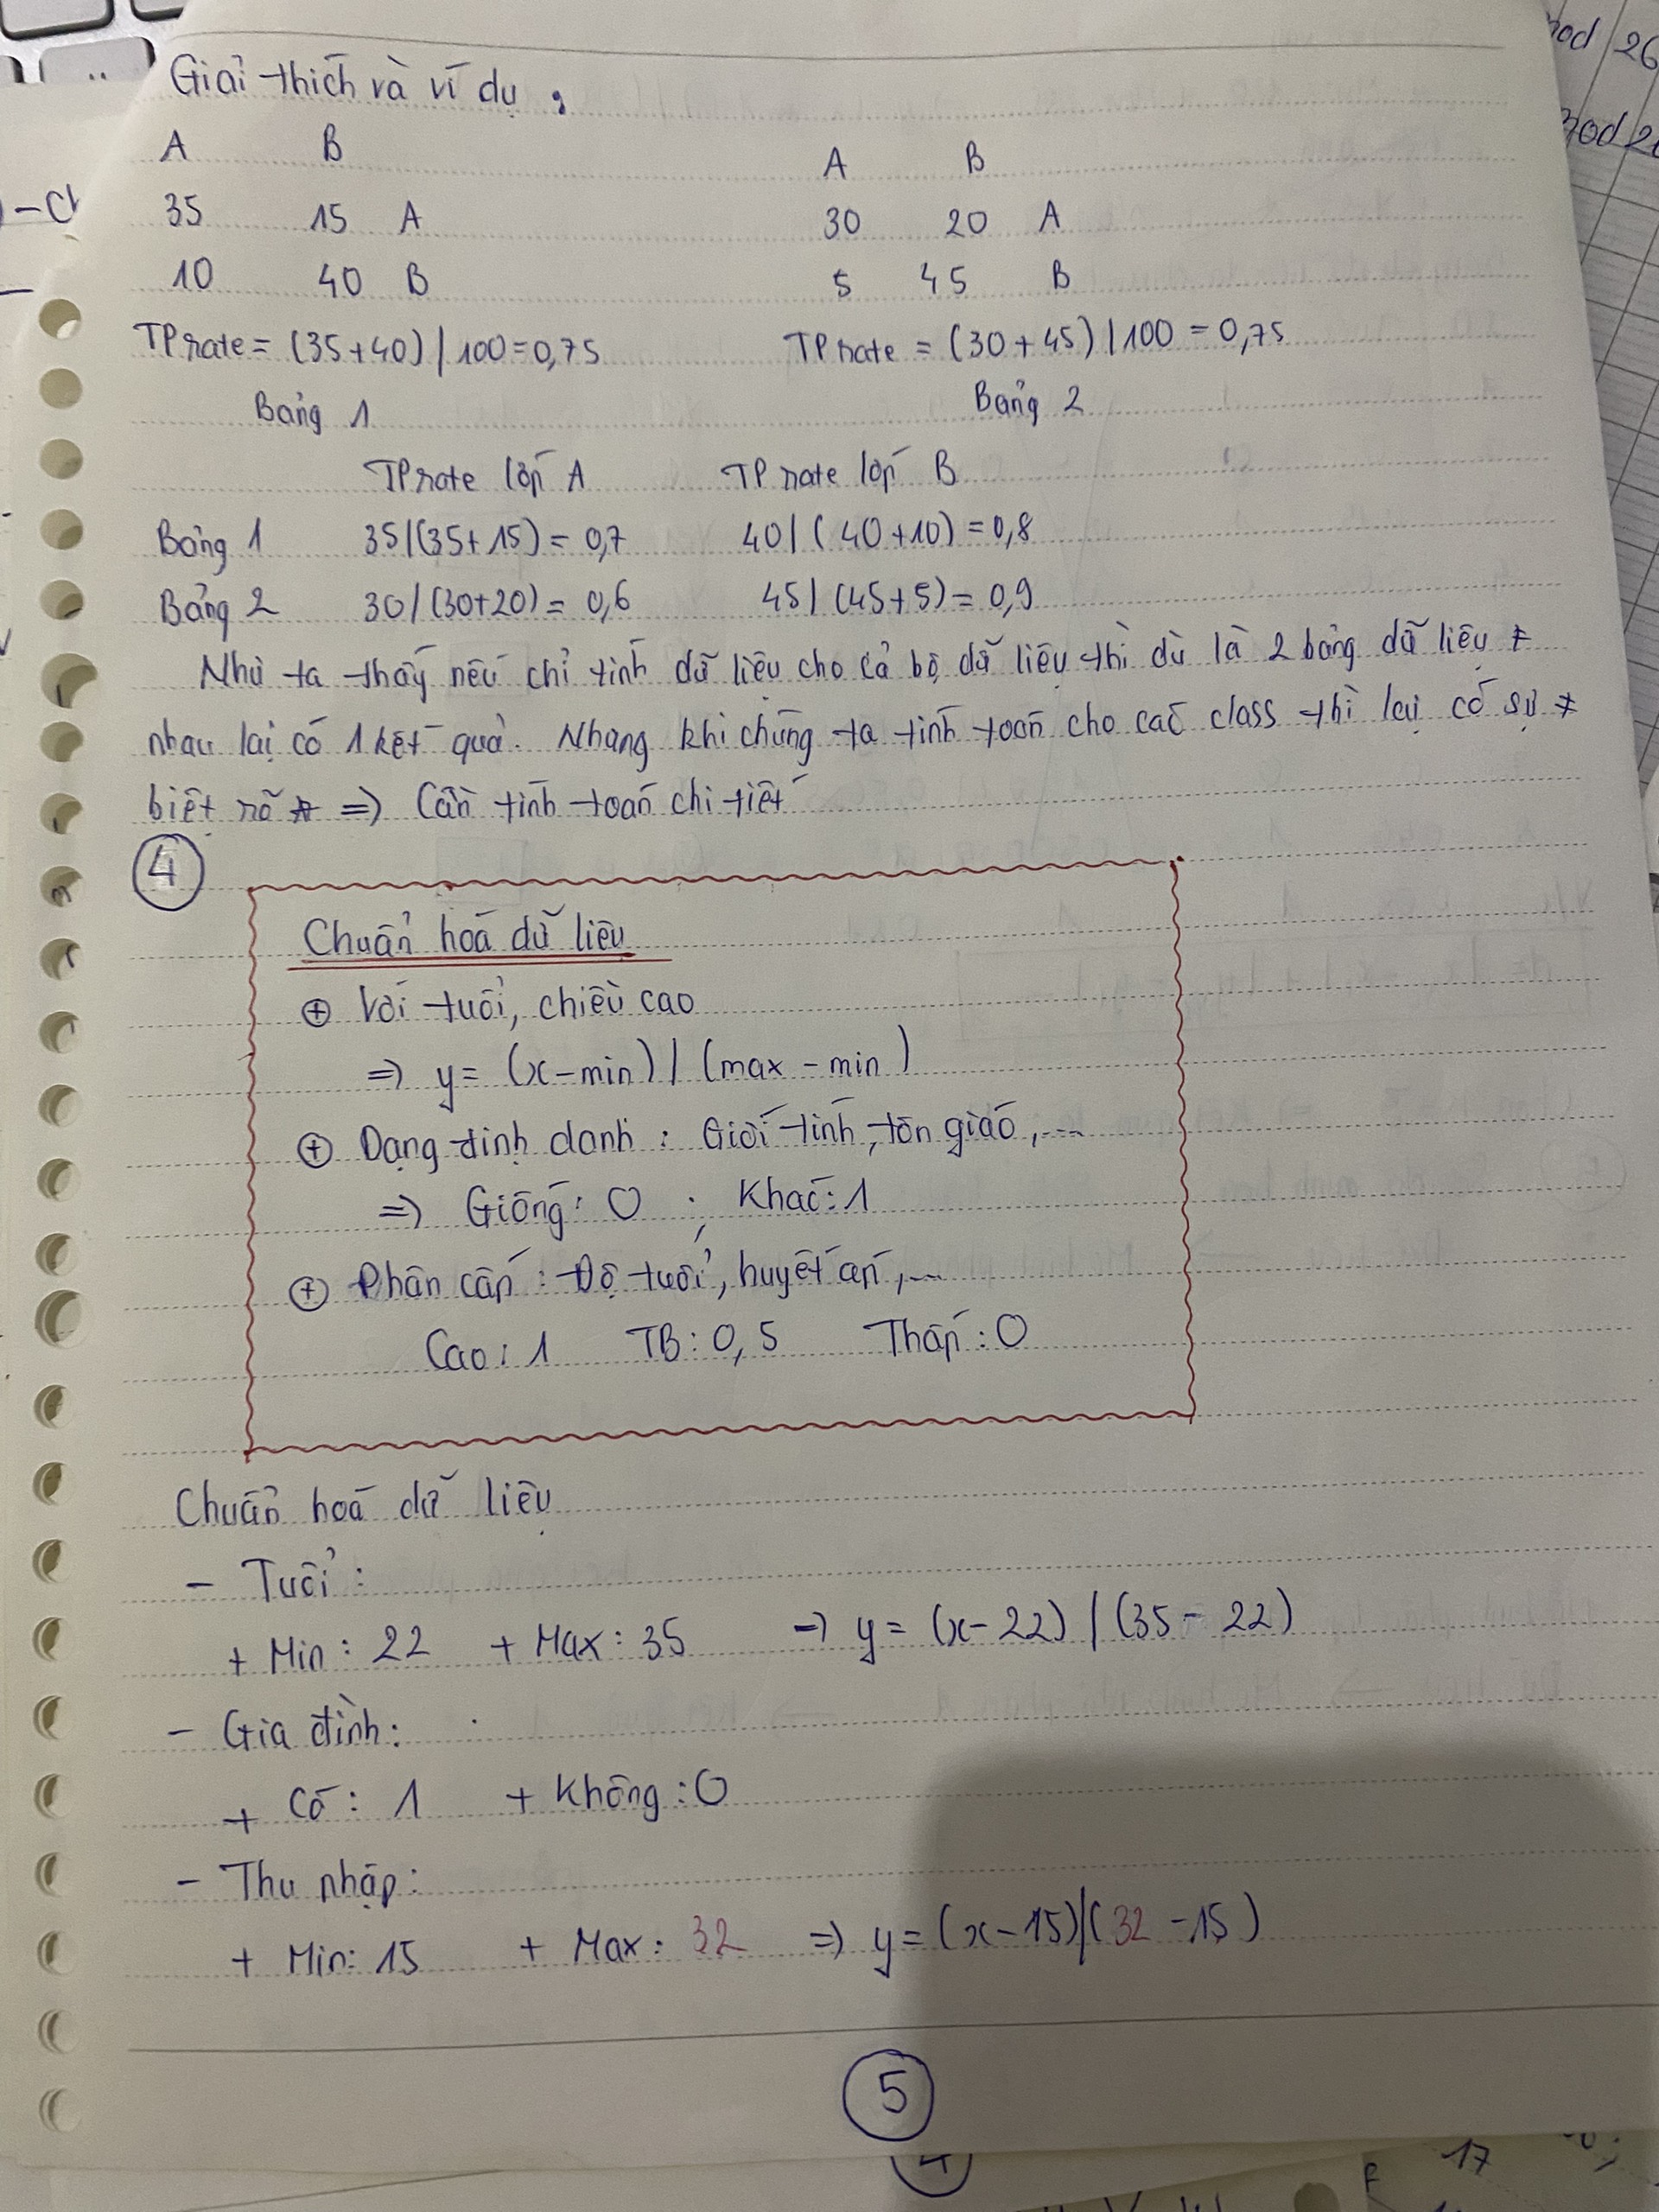 Giải thích và ví dụ,
A B
35 15 A
10 40 B
TP rate = (35+40) / 100 = 0,75
Bảng 1
A B
30 20 A
5 45 B
TP rate = (30+45) / 100 = 0,75
Bảng 2
TP rate lớp A TP rate lớp B
Bảng 1 35/(35+15) = 0,7 40/(40+10) = 0,8
Bảng 2 30/(30+20) = 0,6 45/(45+5) = 0,9
Như ta thấy nếu chỉ tính dữ liệu cho cả bộ dữ liệu thì dù là 2 bảng dữ liệu ≠
nhau lại có 1 kết quả. Nhưng khi chúng ta tính toán cho các class thì lại có sự ≠
biệt rõ => Cần tính toán chi tiết
4
Chuẩn hoá dữ liệu
⊕ Với tuổi, chiều cao
=> y = (x-min) / (max-min)
⊕ Dạng định danh : Giới tính, tôn giáo,...
=> Giống: 0 ; Khác: 1
⊕ Phân cấp : Độ tuổi, huyết áp,...
Cao: 1 TB: 0,5 Thấp: 0
Chuẩn hoá dữ liệu
- Tuổi :
+ Min : 22 + Max : 35 => y = (x-22) / (35-22)
- Gia đình:
+ Có : 1 + Không : 0
- Thu nhập:
+ Min: 15 + Max: 32 => y = (x-15)/(32-15)
5
4
17